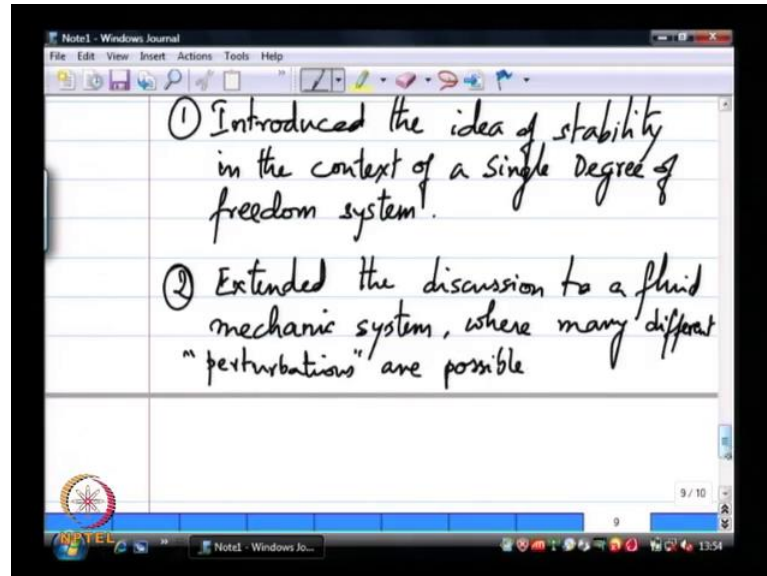 Note1 - Windows Journal
File Edit View Insert Actions Tools Help
① Introduced the idea of stability
in the context of a Single Degree of
freedom system.
② Extended the discussion to a fluid
mechanic system, where many different
"perturbations" are possible
9 / 10
9
NPTEL
Note1 - Windows Jo...
13:54